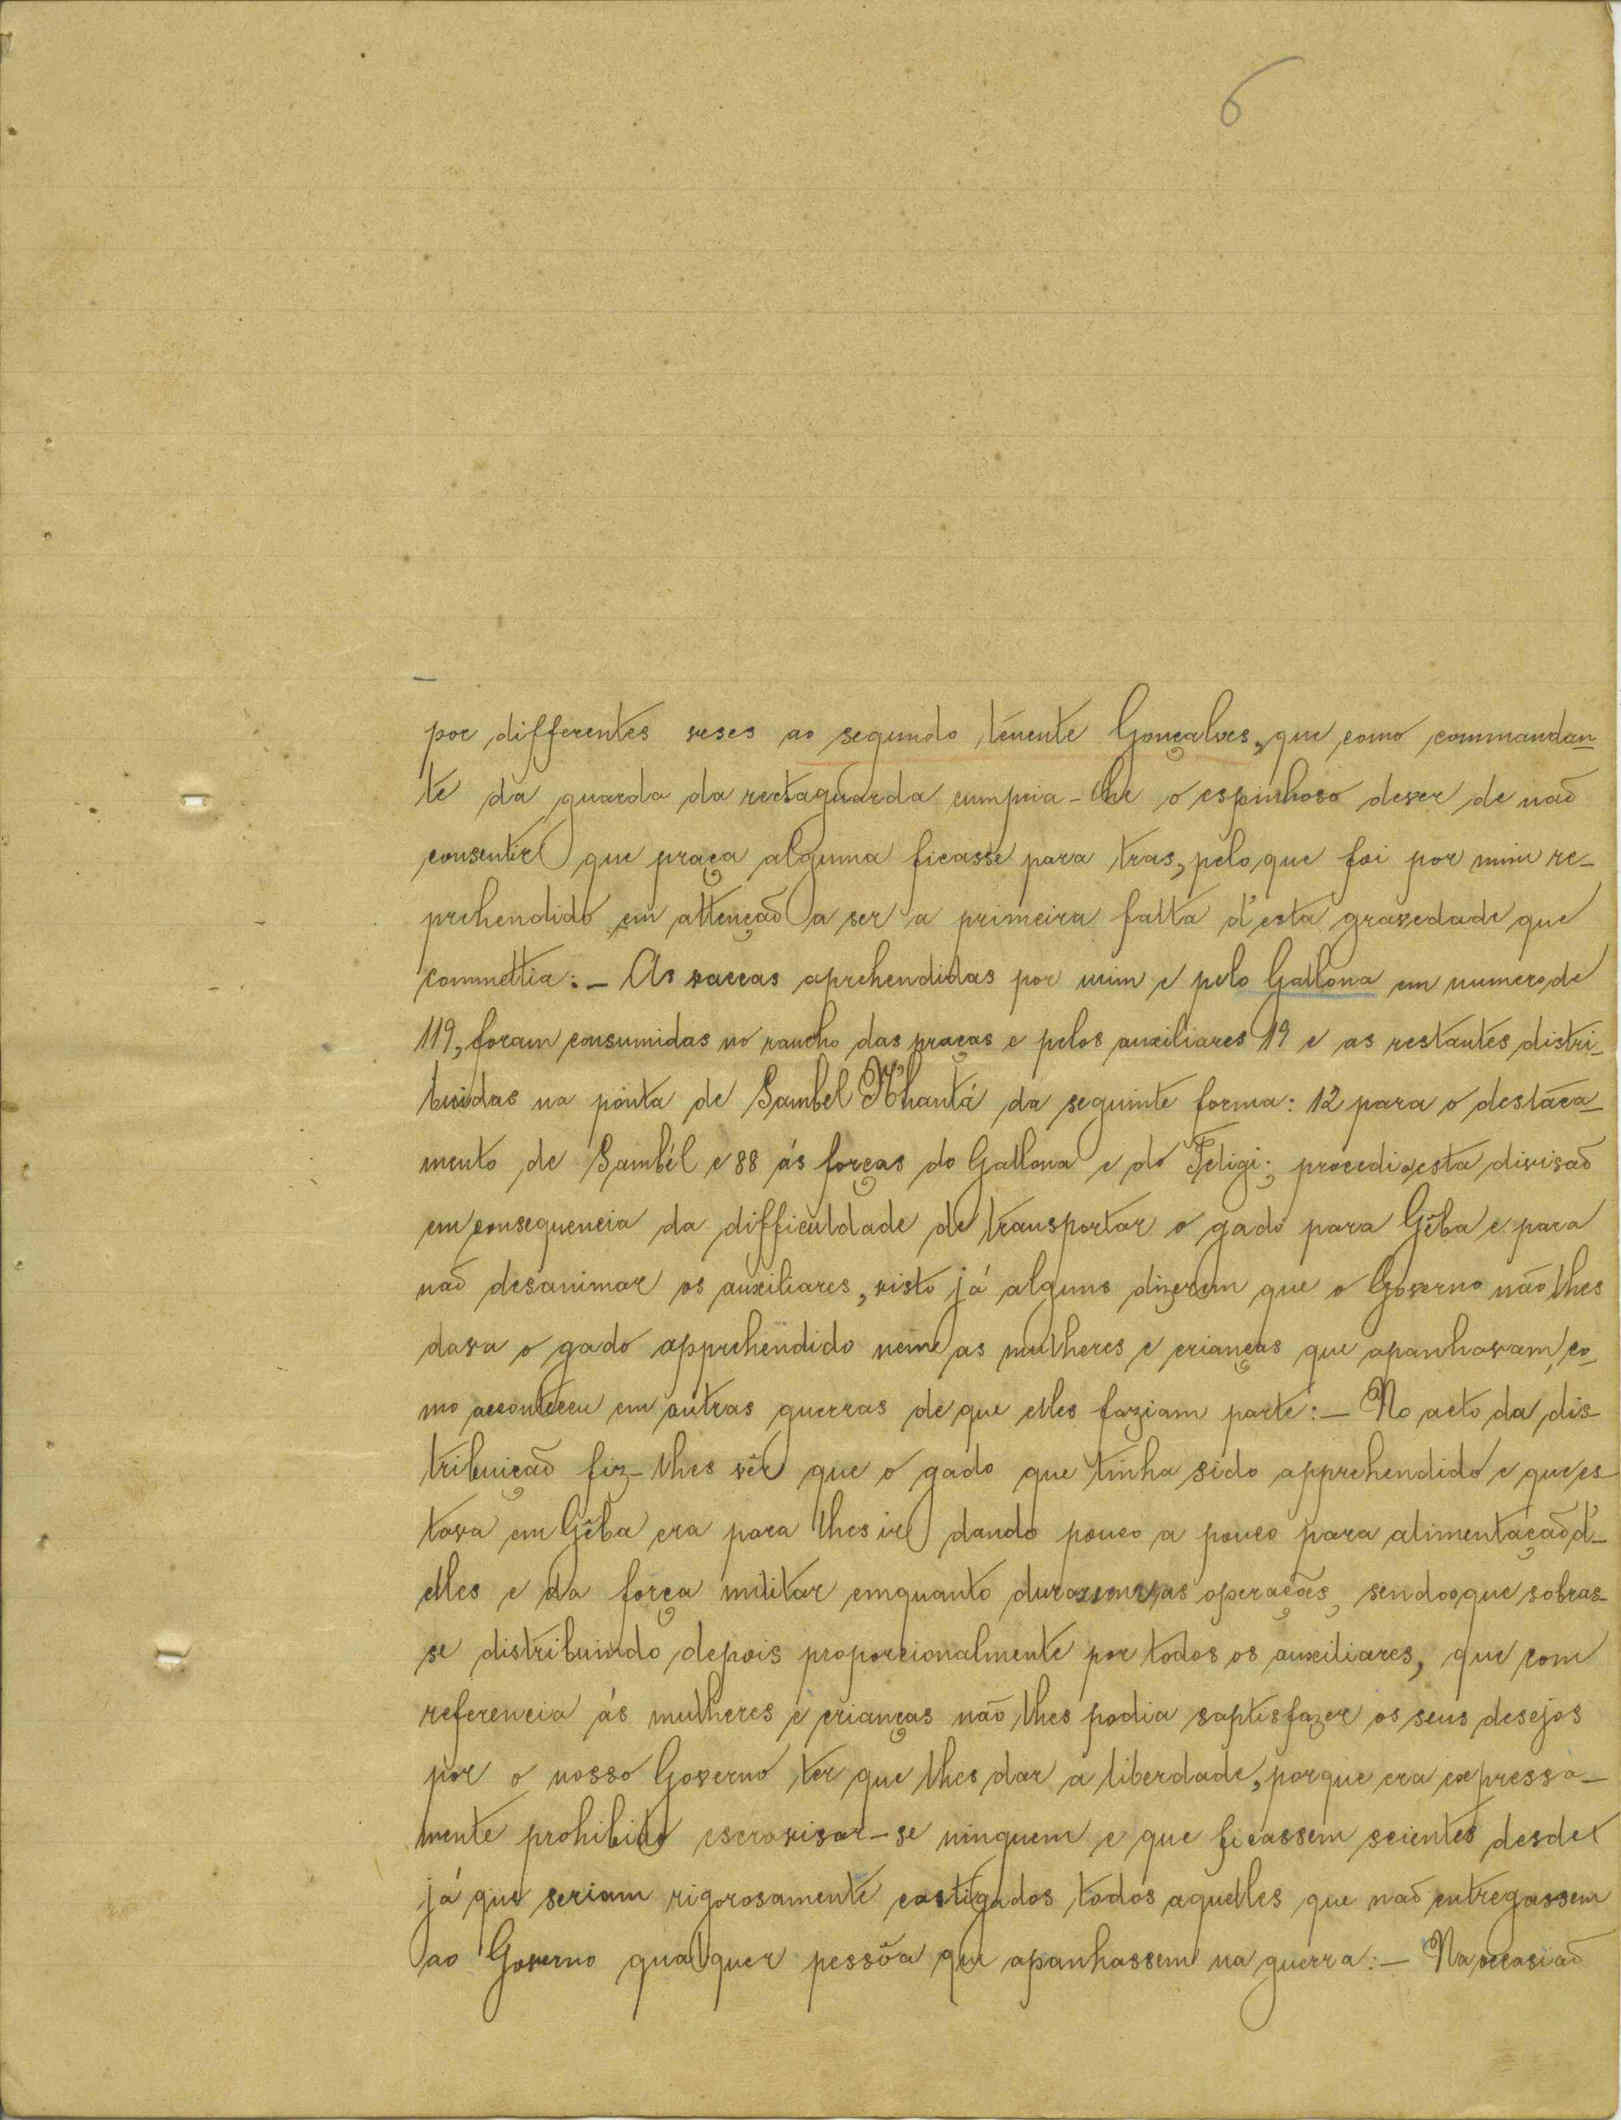 6
por differentes veses ao segundo tenente Gonçalves, que como commandan-
te da guarda da rectaguarda cumpria-lhe o espinhoso dever de não
consentir que praça alguma ficasse para tras, pelo que foi por mim re-
prehendido em attenção a ser a primeira falta d'esta gravedade que
commettia:- As vaccas aprehendidas por mim e pelo Gallona em numero de
119, foram consumidas no rancho das praças e pelos auxiliares 19 e as restantes distri-
buidas na ponta de Sambel Nhantá da seguinte forma: 12 para o destaca-
mento de Sambél e 88 ás forças do Gallona e do Feligi; procedi a esta divisão
em consequencia da difficuldade de transportar o gado para Gêba e para
não desanimar os auxiliares, visto já alguns dizerem que o Governo não lhes
dava o gado apprehendido nem as mulheres e crianças que apanhavam, co-
mo aconteceu em outras guerras de que elles faziam parte:- No acto da dis-
tribuição fiz-lhes vêr que o gado que tinha sido apprehendido e que es-
tava em Gêba era para lhes ir dando pouco a pouco para alimentação d'-
elles e da força militar emquanto durassem as operações, sendo o que sobras-
se distribuindo depois proporcionalmente por todos os auxiliares, que com
referencia ás mulheres e crianças não lhes podia saptisfazer os seus desejos
por o nosso Governo ter que lhes dar a liberdade, porque era expressa-
mente prohibido escravisar-se ninguem e que ficassem scientes desde
já que seriam rigorosamente castigados todos aquelles que não entregassem
ao Governo qualquer pessôa que apanhassem na guerra:- Na occasião